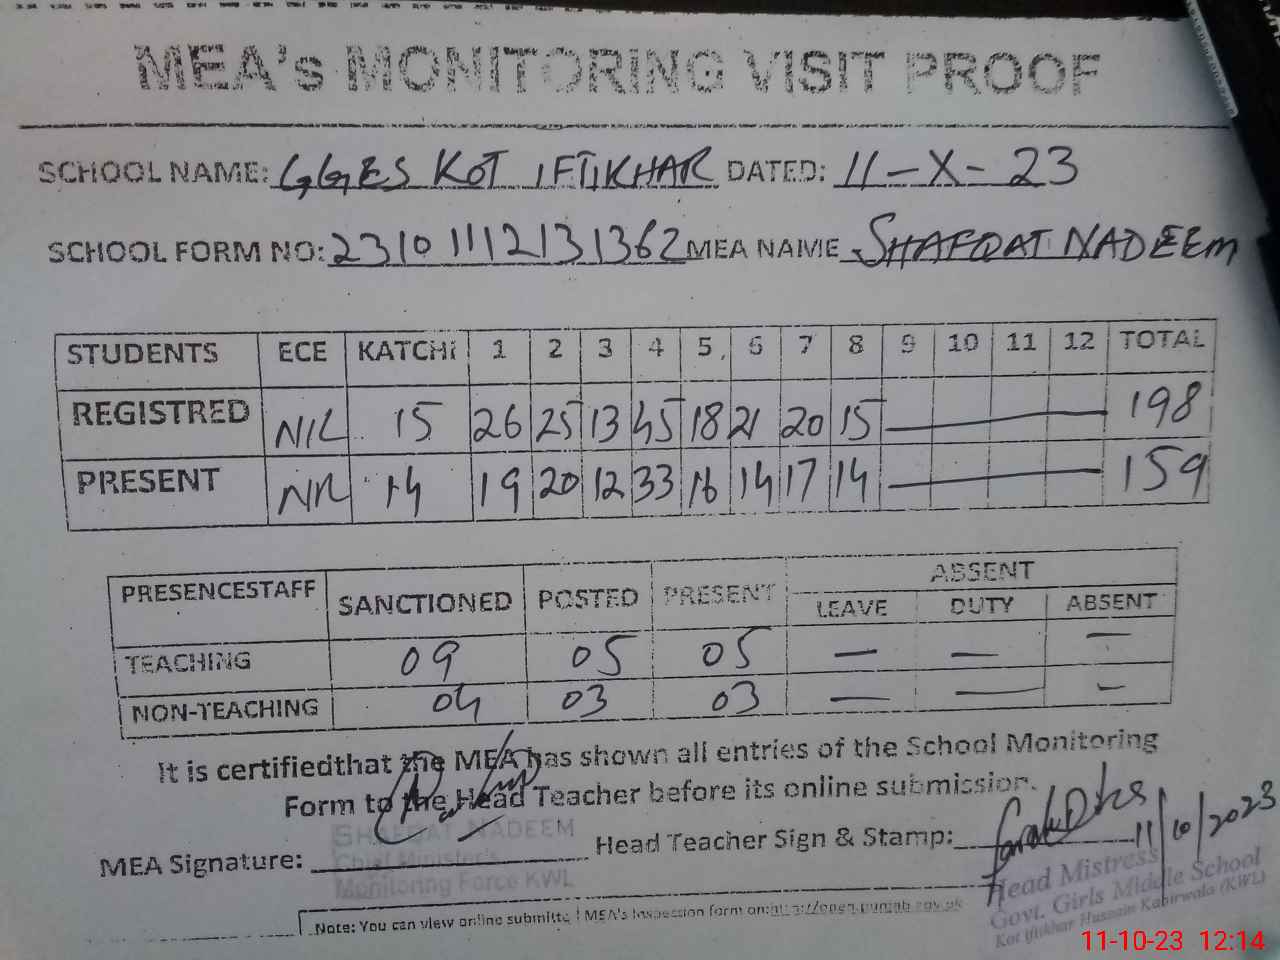 MEA's MONITORING VISIT PROOF
SCHOOL NAME: GGES KOT IFTIKHAR DATED: 11-X-23
SCHOOL FORM NO: 2310111213 1362 MEA NAME SHAFQAT NADEEM
STUDENTS ECE KATCHI 1 2 3 4 5 6 7 8 9 10 11 12 TOTAL
REGISTRED NIL 15 26 25 13 45 18 21 20 15 — 198
PRESENT NIL 14 19 20 12 33 16 14 17 14 — 159
PRESENCESTAFF SANCTIONED POSTED PRESENT ABSENT
LEAVE DUTY ABSENT
TEACHING 09 05 05 — — —
NON-TEACHING 04 03 03 — — —
It is certifiedthat the MEA has shown all entries of the School Monitoring
Form to the Head Teacher before its online submission.
MEA Signature: Head Teacher Sign & Stamp: 11/10/2023
SHAFQAT NADEEM
Chief Minister's
Monitoring Force KWL
Head Mistress
Govt. Girls Middle School
Kot Iftikhar Hussain Kabirwala (KWL)
Note: You can view online submitte MEA's Inspection form on: http://open.punjab.gov.pk
11-10-23 12:14